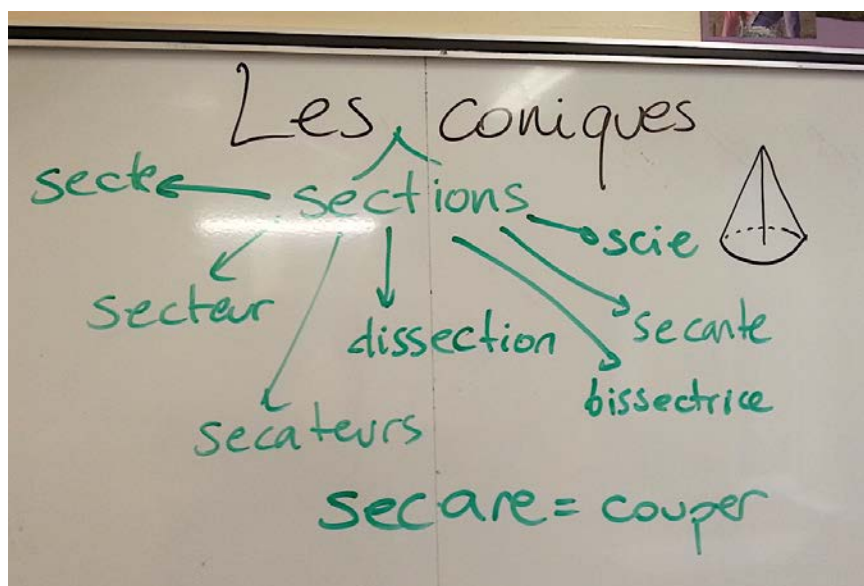 Les coniques
sections
secte
scie
secteur
dissection
secante
bissectrice
secateurs
secare = couper